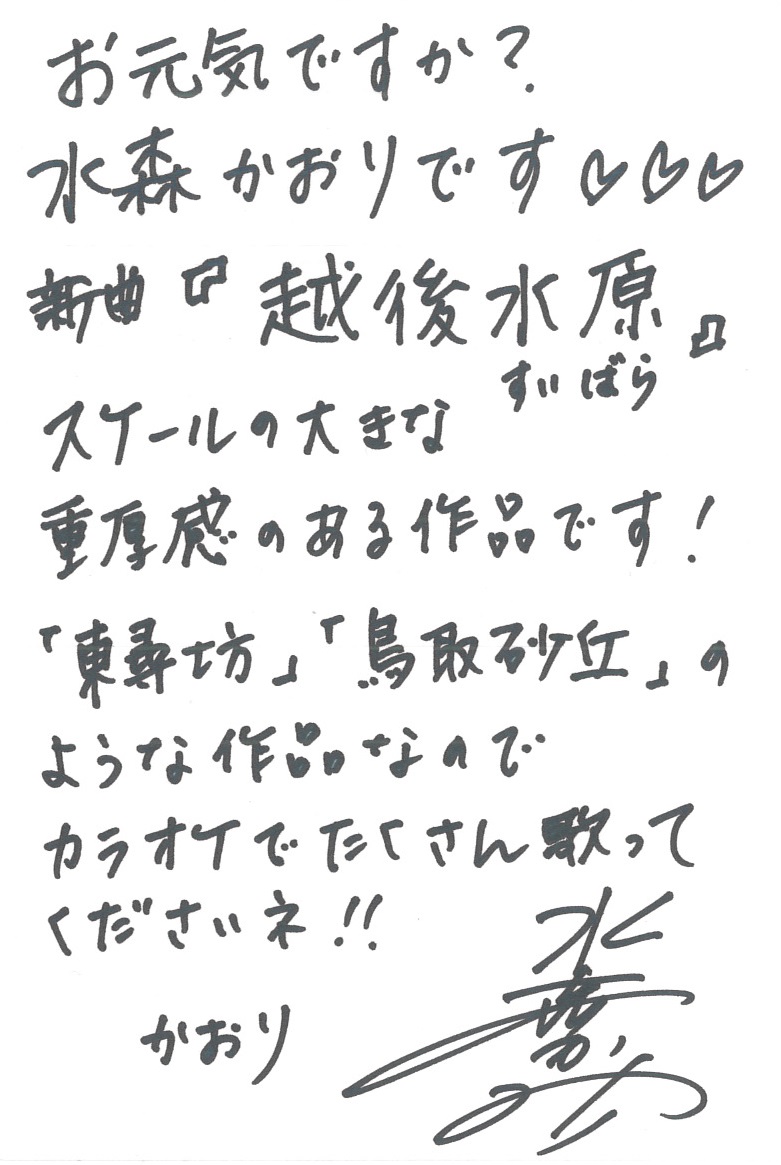 お元気ですか?
水森かおりです♡♡♡
新曲『越後水原』
すいばら
スケールの大きな
重厚感のある作品です!
「東尋坊」「鳥取砂丘」の
ような作品なので
カラオケでたくさん歌って
くださいネ!!
かおり